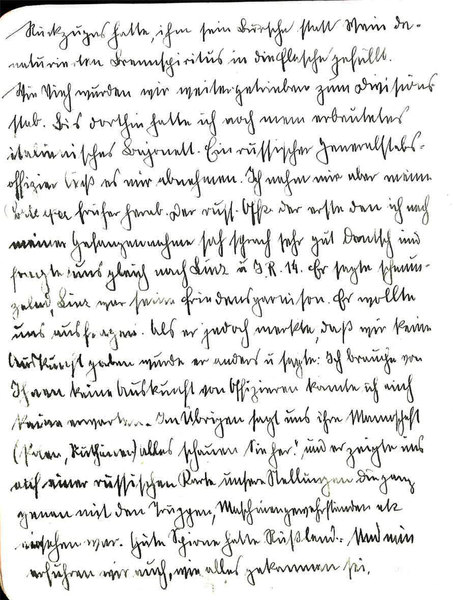 Rückzuges hatte, ihm sein Bursche statt Wein de-
naturierten Brennspiritus in die Flasche gefüllt.
Wie Vieh wurden wir weitergetrieben zum Divisions
stab. Bis dorthin hatte ich noch mein erbeutetes
italienisches Bajonett. Ein russischer Generalstabs-
offizier ließ es mir abnehmen. Ich nahm mir aber meine
früher herab. Der russ. Offz. der erste den ich nach
meiner Gefangennahme sah sprach sehr gut Deutsch und
fragte uns gleich nach Linz u I.R. 14. Er sagte schmun-
zelnd, Linz war seine Friedensgarnison. Er wollte
uns ausfragen. Als er jedoch merkte, daß wir keine
Auskunft gaben wurde er anders u sagte: Ich brauche von
Ihnen keine Auskunft von Offizieren konnte ich auch
keine erwarten. Im Übrigen sagt uns ihre Mannschaft
(Ruthenen) alles schauen Sie her! und er zeigte uns
auf einer russischen Karte unsere Stellungen die ganz
genau mit den Truppen, Maschinengewehrständen etz
versehen war. Gute Spione hatte Rußland. Und nun
erfuhren wir auch, wie alles gekommen sei.